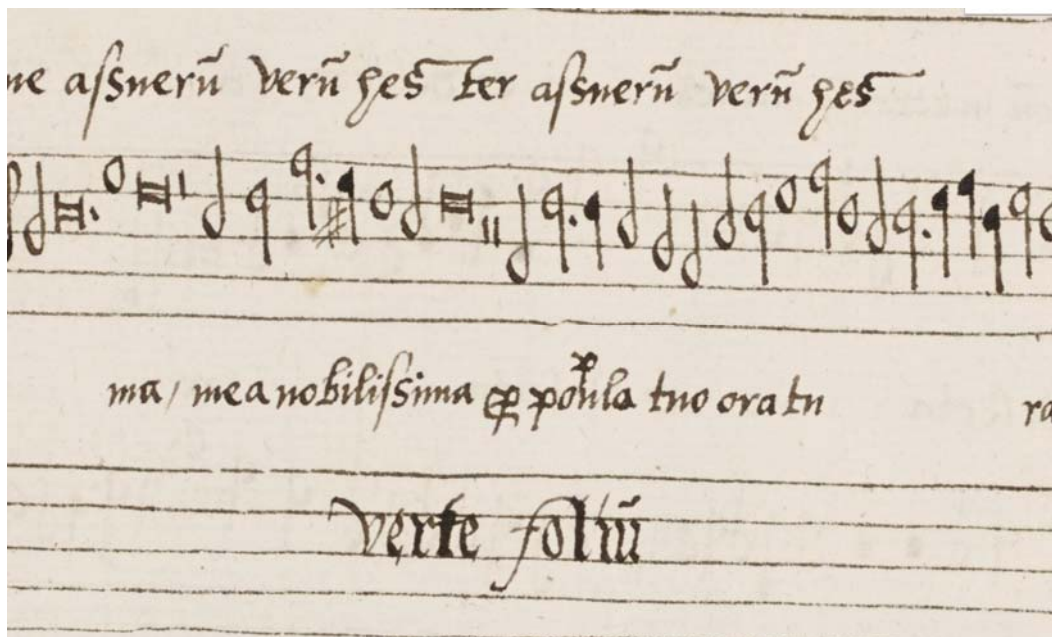 ne assuerũ verũ hes ter assuerũ verũ hes
ma / mea nobilissima ꝓ popula tuo ora tu
verte foliũ